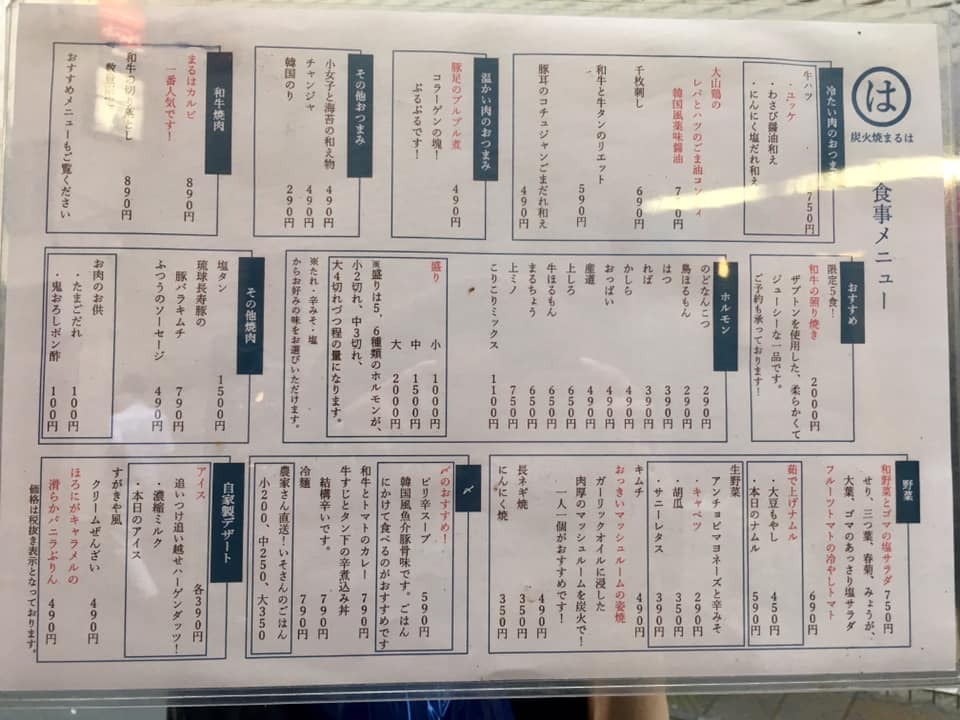 は
炭火焼まるは
食事メニュー
冷たい肉のおつま
牛ハツ
・ユッケ
・わさび醤油和え
・にんにく塩だれ和え
750円
大山鶏の
レバとハツのごま油コン
韓国風薬味醤油
千枚刺し
690円
和牛と牛タンのリエット
590円
豚耳のコチュジャンごまだれ和え
490円
温かい肉のおつまみ
豚足のプルプル煮
490円
コラーゲンの塊!
ぷるぷるです!
その他おつまみ
小女子と海苔の和え物
490円
チャンジャ
490円
韓国のり
290円
和牛焼肉
まるはカルビ
890円
一番人気です!
和牛の切り落とし
890円
おすすめメニューもご覧ください
おすすめ
限定5食!
和牛の照り焼き
2000円
ザブトンを使用した、柔らかくて
ジューシーな一品です。
ご予約も承っております!
ホルモン
のどなんこつ
290円
鳥ほるもん
290円
はつ
390円
れば
390円
かしら
490円
おっぱい
490円
産道
490円
上しろ
650円
まるちょう
650円
牛ほるもん
650円
上ミノ
750円
こりこりミックス
1100円
盛り
小 1000円
中 1500円
大 2000円
※盛りは5,6種類のホルモンが、
小2切れ、中3切れ、
大4切れづつ程の量になります。
※たれ・辛みそ・塩
からお好みの味をお選びいただけます。
その他焼肉
塩タン
1500円
琉球長寿豚の
豚バラキムチ
790円
ふつうのソーセージ
490円
お肉のお供
・たまごだれ
100円
・鬼おろしポン酢
100円
野菜
和野菜とゴマの塩サラダ
750円
せり、三つ葉、春菊、みょうが、
大葉、ゴマのあっさり塩サラダ
フルーツトマトの冷やしトマト
690円
茹で上げナムル
・大豆もやし
450円
・本日のナムル
590円
生野菜
アンチョビマヨネーズと辛みそ
・キャベツ
290円
・胡瓜
350円
・サニーレタス
390円
キムチ
490円
おっきいマッシュルームの姿焼
ガーリックオイルに浸した
肉厚のマッシュルームを炭火で!
一人一個がおすすめです!
490円
長ネギ焼
350円
にんにく焼
350円
〆
〆のおすすめ!
ピリ辛スープ
590円
韓国風魚介豚骨味です。ごはん
にかけて食べるのがおすすめです
和牛とトマトのカレー
790円
牛すじとタン下の辛煮込み丼
結構辛いです。
790円
冷麺
790円
農家さん直送!いそさんのごはん
小200、中250、大350
自家製デザート
アイス
各390円
追いつけ追い越せハーゲンダッツ!
・濃縮ミルク
・本日のアイス
すがきや風
クリームぜんざい
490円
ほろにがキャラメルの
滑らかバニラぷりん
490円
価格は税抜き表示となっております。